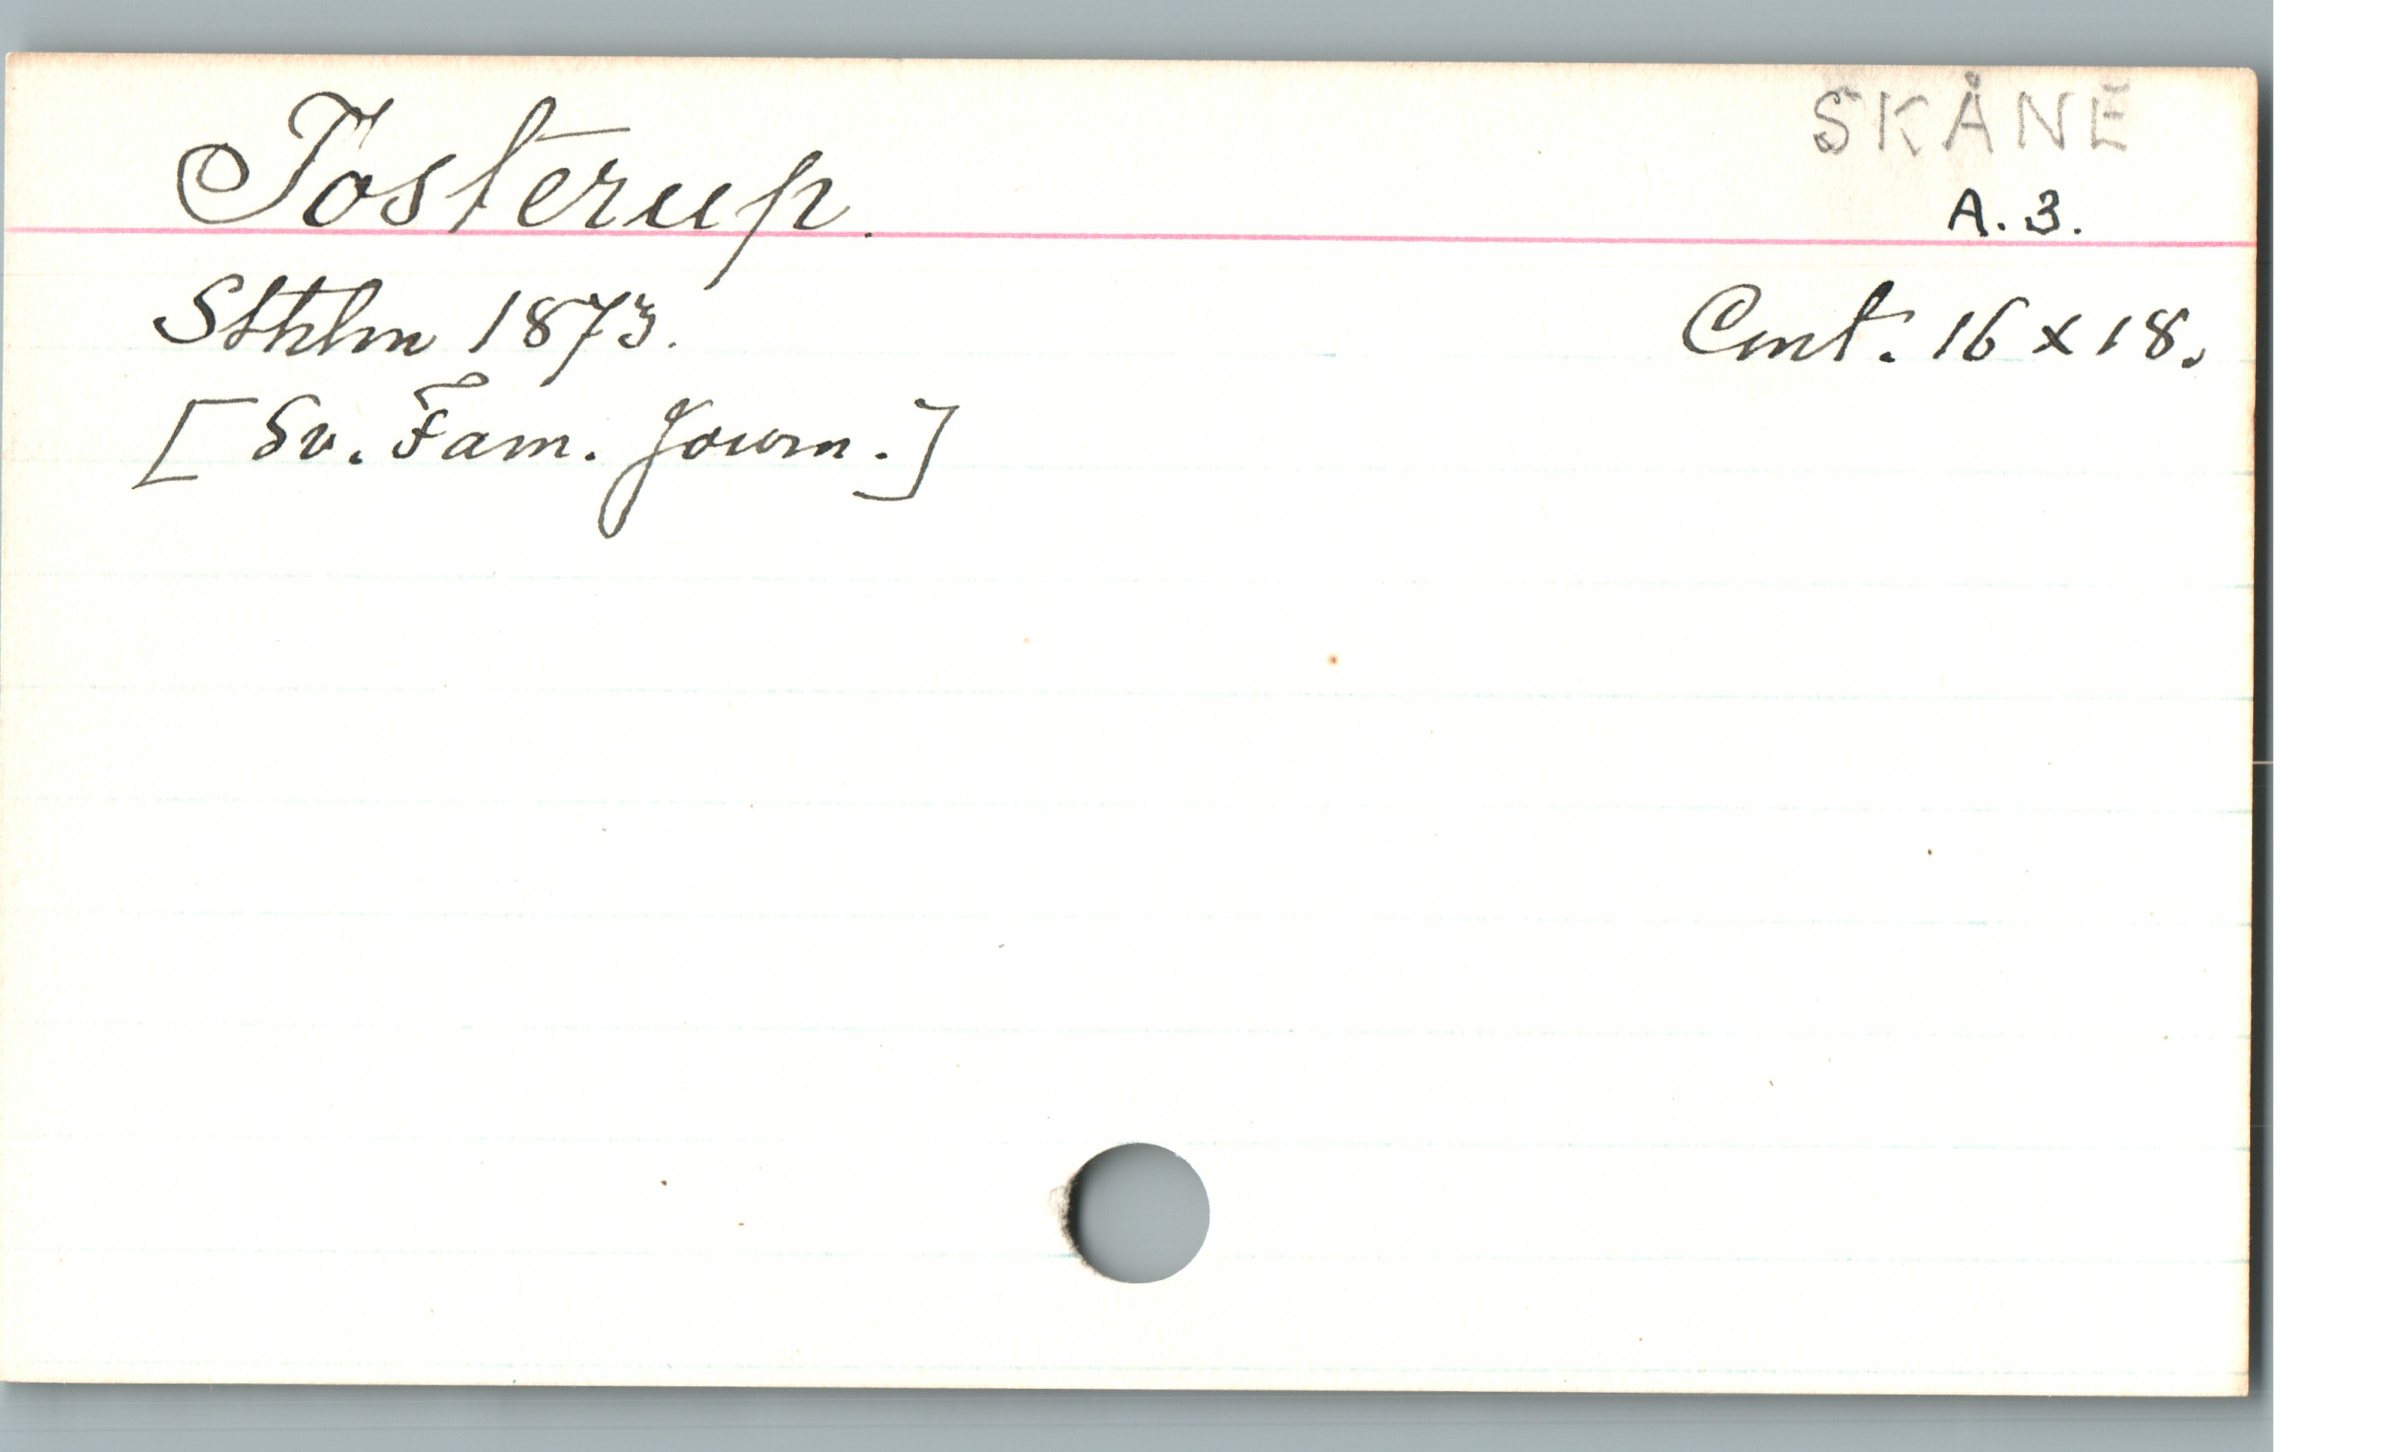 SKÅNE
Tosterup.
A. 3.
Sthlm 1873.
Cmt. 16 x 18.
[Sv. Fam. Journ.]